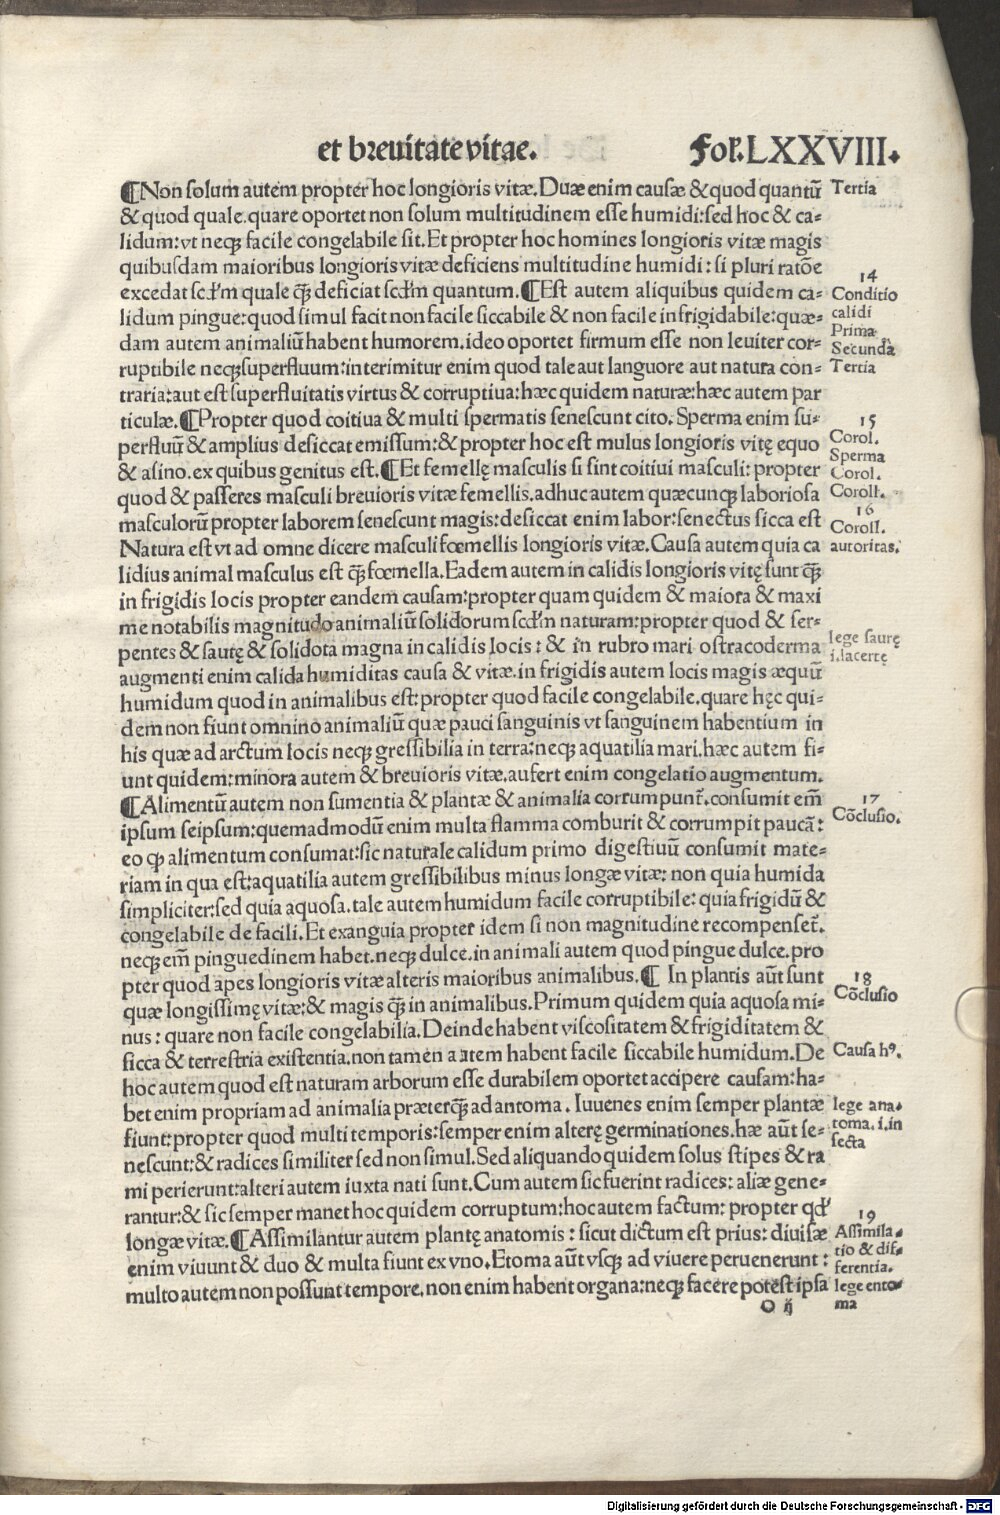 et breuitate vitae. Fol. LXXVIII.
¶Non solum autem propter hoc longioris vitæ. Duæ enim causæ & quod quantũ
& quod quale. quare oportet non solum multitudinem esse humidi: sed hoc & ca-
lidum: vt neqꝫ facile congelabile sit. Et propter hoc homines longioris vitæ magis
quibusdam maioribus longioris vitæ deficiens multitudine humidi: si pluri ratõe
excedat scd'm quale q̃ꝫ deficiat scd'm quantum. ¶Est autem aliquibus quidem ca-
lidum pingue: quod simul facit non facile siccabile & non facile infrigidabile: quæ-
dam autem animaliũ habent humorem. ideo oportet firmum esse non leuiter cor-
ruptibile neqꝫ superfluum: interimitur enim quod tale aut languore aut natura con-
traria: aut est superfluitatis virtus & corruptiua: hæc quidem naturæ: hæc autem par
ticulæ. ¶Propter quod coitiua & multi spermatis senescunt cito. Sperma enim su-
perfluũ & amplius desiccat emissum: & propter hoc est mulus longioris vitę equo
& asino. ex quibus genitus est. ¶Et femellę masculis si sint coitiui masculi: propter
quod & passeres masculi breuioris vitæ femellis. adhuc autem quæcunqꝫ laboriosa
masculorũ propter laborem senescunt magis: desiccat enim labor: senectus sicca est
Natura est vt ad omne dicere masculi fœmellis longioris vitæ. Causa autem quia ca
lidius animal masculus est q̃ꝫ fœmella. Eadem autem in calidis longioris vitę sunt q̃ꝫ
in frigidis locis propter eandem causam: propter quam quidem & maiora & maxi
me notabilis magnitudo animaliũ solidorum scd'm naturam: propter quod & ser-
pentes & sautę & solidota magna in calidis locis: & in rubro mari ostracoderma
augmenti enim calida humiditas causa & vitæ. in frigidis autem locis magis æquũ
humidum quod in animalibus est: propter quod facile congelabile. quare hęc qui-
dem non fiunt omnino animaliũ quæ pauci sanguinis vt sanguinem habentium in
his quæ ad arctum locis neqꝫ gressibilia in terra: neqꝫ aquatilia mari. hæc autem fi-
unt quidem: minora autem & breuioris vitæ. aufert enim congelatio augmentum.
¶Alimentũ autem non sumentia & plantæ & animalia corrumpunt᷑. consumit em̃
ipsum seipsum: quemadmodũ enim multa flamma comburit & corrumpit paucã:
eo ꝙ alimentum consumat: sic naturale calidum primo digestiuũ consumit mate-
riam in qua est: aquatilia autem gressibilibus minus longæ vitæ: non quia humida
simpliciter: sed quia aquosa. tale autem humidum facile corruptibile: quia frigidũ &
congelabile de facili. Et exanguia propter idem si non magnitudine recompenset᷑.
neqꝫ em̃ pinguedinem habet. neqꝫ dulce. in animali autem quod pingue dulce. pro
pter quod apes longioris vitæ alteris maioribus animalibus. ¶ In plantis aũt sunt
quæ longissimę vitæ: & magis q̃ꝫ in animalibus. Primum quidem quia aquosa mi-
nus: quare non facile congelabilia. Deinde habent viscositatem & frigiditatem &
sicca & terrestria existentia. non tamen autem habent facile siccabile humidum. De
hoc autem quod est naturam arborum esse durabilem oportet accipere causam: ha-
bet enim propriam ad animalia præterq̃ꝫ ad antoma. Iuuenes enim semper plantæ
fiunt: propter quod multi temporis: semper enim alterę germinationes. hæ aũt se-
nescunt: & radices similiter sed non simul. Sed aliquando quidem solus stipes & ra
mi perierunt: alteri autem iuxta nati sunt. Cum autem sic fuerint radices: aliæ gene-
rantur: & sic semper manet hoc quidem corruptum: hoc autem factum: propter qd'
longæ vitæ. ¶Assimilantur autem plantę anatomis: sicut dictum est prius: diuisæ
enim viuunt & duo & multa fiunt ex vno. Etoma aũt vsqꝫ ad viuere peruenerunt:
multo autem non possunt tempore. non enim habent organa: neqꝫ facere potest ipsa
O ij
Tertia
14
Conditio
calidi
Prima
Secunda
Tertia
15
Corol.
Sperma
Corol.
Coroll.
16
Coroll.
autoritas.
lege saurę
i. lacertę
17
Cõclusio.
18
Cõclusio
Causa hꝰ.
lege ana-
toma. i. in
secta
19
Assimila-
tio & dif-
ferentia.
lege ento-
ma
Digitalisierung gefördert durch die Deutsche Forschungsgemeinschaft - DFG